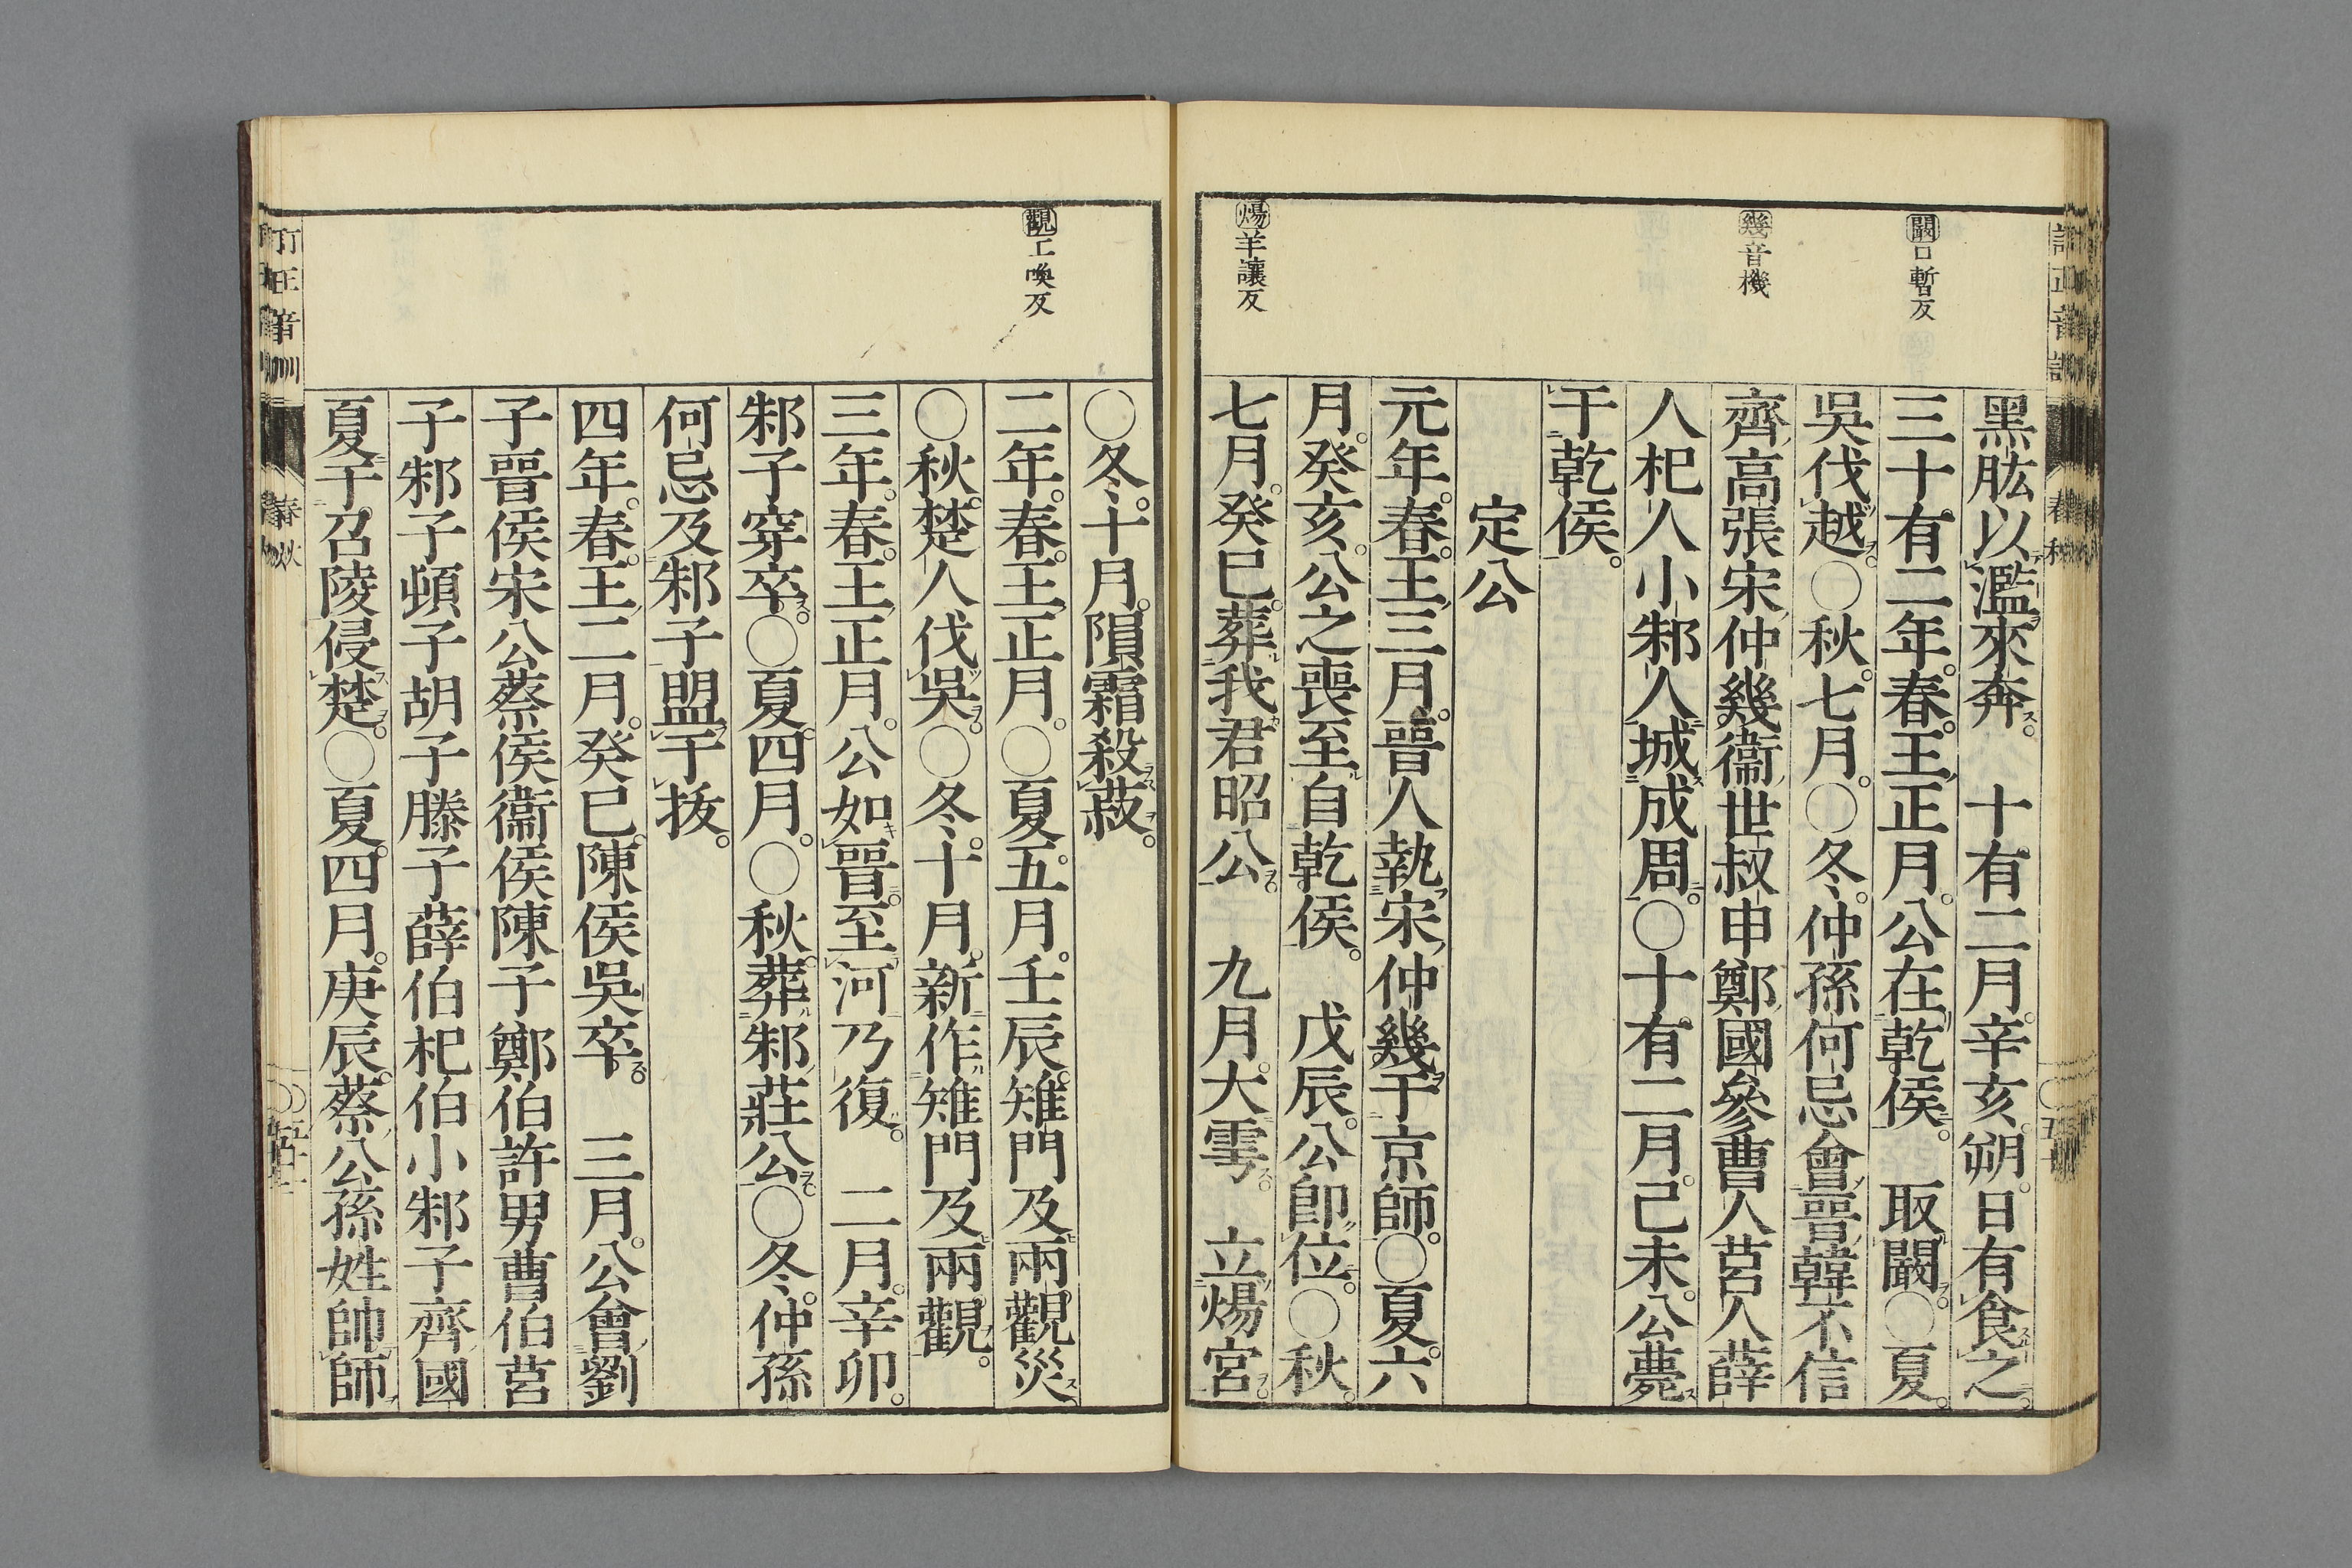 闞口暫反
幾音機
煬羊讓反
黑肱以濫來奔。十有二月。辛亥。朔。日有食之。
三十有二年。春。王正月。公在乾侯。取闞。〇夏。
吳伐越。〇秋。七月。〇冬。仲孫何忌會晉韓不信
齊高張宋仲幾衞世叔申鄭國參曹人莒人薛
人杞人小邾人城成周。〇十有二月。己未。公薨
于乾侯。
定公
元年。春。王三月。晉人執宋仲幾于京師。〇夏。六
月。癸亥。公之喪至自乾侯。戊辰。公卽位。〇秋。
七月。癸巳。葬我君昭公。九月。大雩。立煬宮。
觀工喚反
〇冬。十月。隕霜殺菽。
二年。春。王正月。〇夏。五月。壬辰。雉門及兩觀災
〇秋。楚人伐吳。〇冬。十月。新作雉門及兩觀。
三年。春。王正月。公如晉。至河乃復。二月。辛卯。
邾子穿卒。〇夏。四月。〇秋。葬邾莊公。〇冬。仲孫
何忌及邾子盟于拔。
四年。春。王二月。癸巳。陳侯吳卒。三月。公會劉
子晉侯宋公蔡侯衞侯陳子鄭伯許男曹伯莒
子邾子頓子胡子滕子薛伯杞伯小邾子齊國
夏于召陵侵楚。〇夏。四月。庚辰。蔡公孫姓帥師